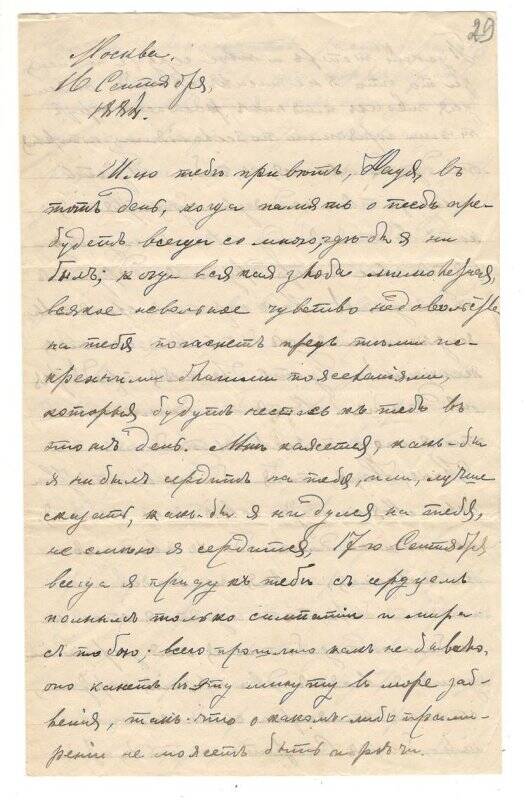 29
Москва.
16 Сентября,
1882.
Шлю тебѣ привѣтъ, Надя, въ
тотъ день, когда память о тебѣ пре-
будетъ всегда со мною, гдѣ-бы я ни
былъ; когда всякая злоба мимолетная,
всякое невольное чувство недовольства
на тебя погаснетъ предъ тѣми ис-
кренними благими пожеланіями,
которыя будутъ нестись къ тебѣ въ
тотъ день. Мнѣ кажется, какъ-бы
я ни былъ сердитъ на тебя, или, лучше
сказать, какъ-бы я ни дулся на тебя,
не смѣю я сердится, 17-го Сентября
всегда я приду къ тебѣ съ сердцемъ
полнымъ только симпатіи и мира
съ тобою; всего прошлаго какъ не бывало,
оно канетъ въ эту минуту въ море заб-
венія, такъ-что о какомъ-либо прими-
реніи не можетъ быть и рѣчи.